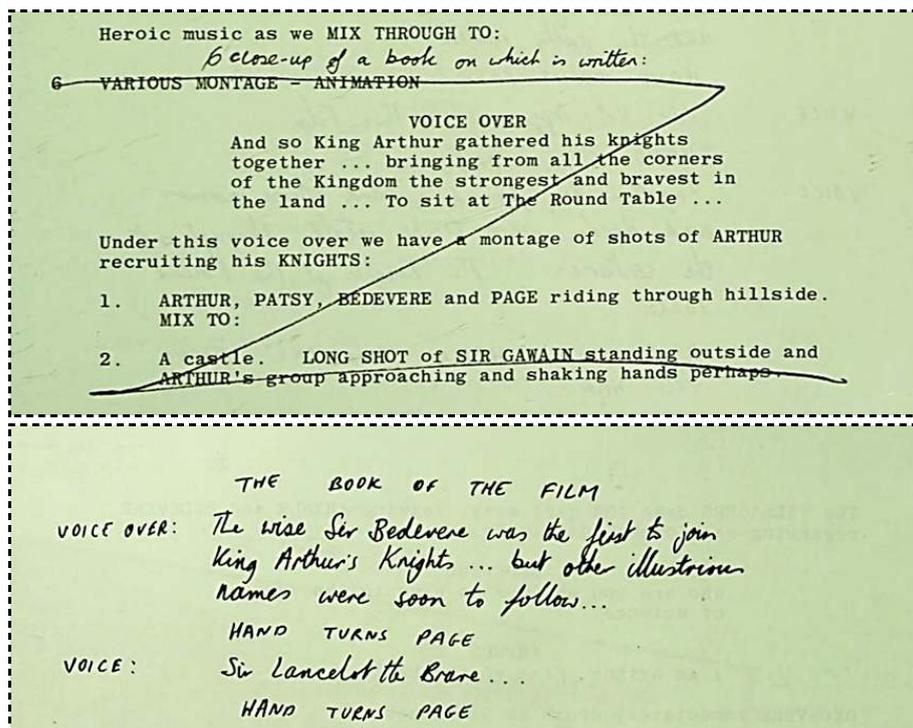 Heroic music as we MIX THROUGH TO:
6 close-up of a book on which is written:
6 VARIOUS MONTAGE - ANIMATION
VOICE OVER
And so King Arthur gathered his knights
together ... bringing from all the corners
of the Kingdom the strongest and bravest in
the land ... To sit at The Round Table ...
Under this voice over we have a montage of shots of ARTHUR
recruiting his KNIGHTS:
1. ARTHUR, PATSY, BEDEVERE and PAGE riding through hillside.
MIX TO:
2. A castle. LONG SHOT of SIR GAWAIN standing outside and
ARTHUR's group approaching and shaking hands perhaps.
THE BOOK OF THE FILM
VOICE OVER: The wise Sir Bedevere was the first to join
King Arthur's Knights ... but other illustrious
names were soon to follow...
HAND TURNS PAGE
VOICE: Sir Lancelot the Brave ....
HAND TURNS PAGE